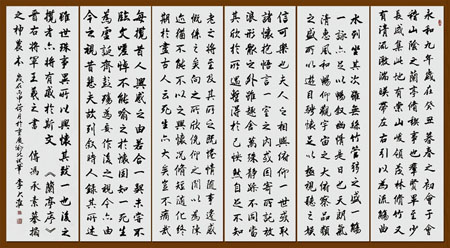 永和九年歲在癸丑暮春之初會于會
稽山陰之蘭亭脩禊事也群賢畢至少
長咸集此地有崇山峻領茂林脩竹又
有清流激湍暎帶左右引以為流觴曲
水列坐其次雖無絲竹管弦之盛一觴
一詠亦足以暢敘幽情是日也天朗氣
清惠風和暢仰觀宇宙之大俯察品類
之盛所以遊目騁懷足以極視聽之娛
信可樂也夫人之相與俯仰一世或取
諸懷抱悟言一室之內或因寄所託放
浪形骸之外雖趣舍萬殊靜躁不同當
其欣於所遇暫得於己怏然自足不知
老之將至及其所之既惓情隨事遷感
慨係之矣向之所欣俛仰之間以為陳
迹猶不能不以之興懷況脩短隨化終
期於盡古人云死生亦大矣豈不痛哉
每攬昔人興感之由若合一契未嘗不
臨文嗟悼不能喻之於懷固知一死生
為虛誕齊彭殤為妄作後之視今亦由
今之視昔悲夫故列敘時人錄其所述
雖世殊事異所以興懷其致一也後之
攬者亦將有感於斯文 《蘭亭序》
晉右將軍王羲之書 馮承素摹搨
之神龍本 歲在丙申荷月於重慶渝北 李大